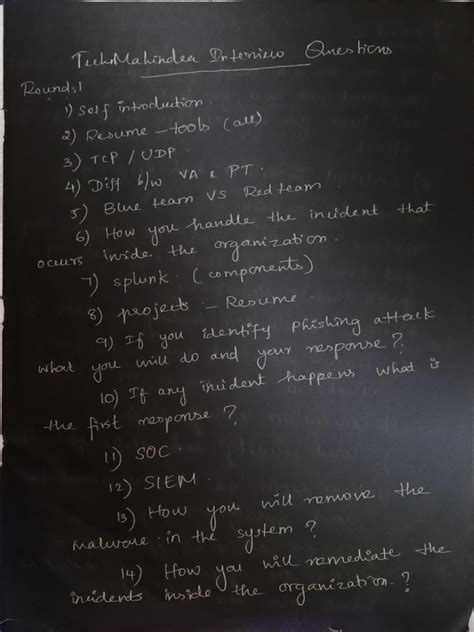 TechMahindra Interview Questions
Round:1
1) Self introduction.
2) Resume - tools (all)
3) TCP / UDP.
4) Diff b/w VA & PT.
5) Blue team VS Red team.
6) How you handle the incident that
occurs inside the organization.
7) splunk. (components)
8) projects - Resume.
9) If you identify phishing attack
what you will do and your response?
10) If any incident happens what is
the first response?
11) SOC.
12) SIEM.
13) How you will remove the
malware in the system?
14) How you will remediate the
incidents inside the organization.?